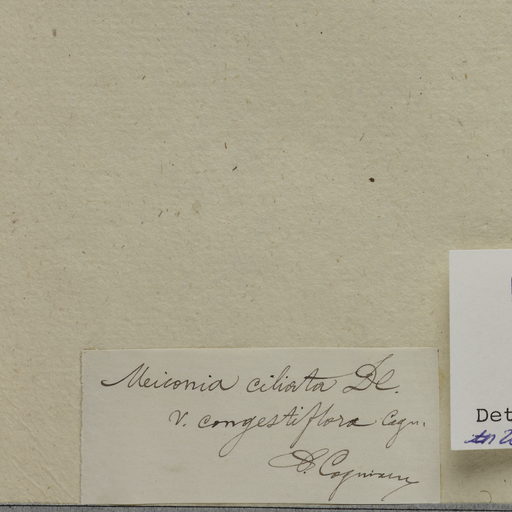 Meiconia ciliata DC.
v. congestiflora Cogn.
A. Cogniaux
Det
in